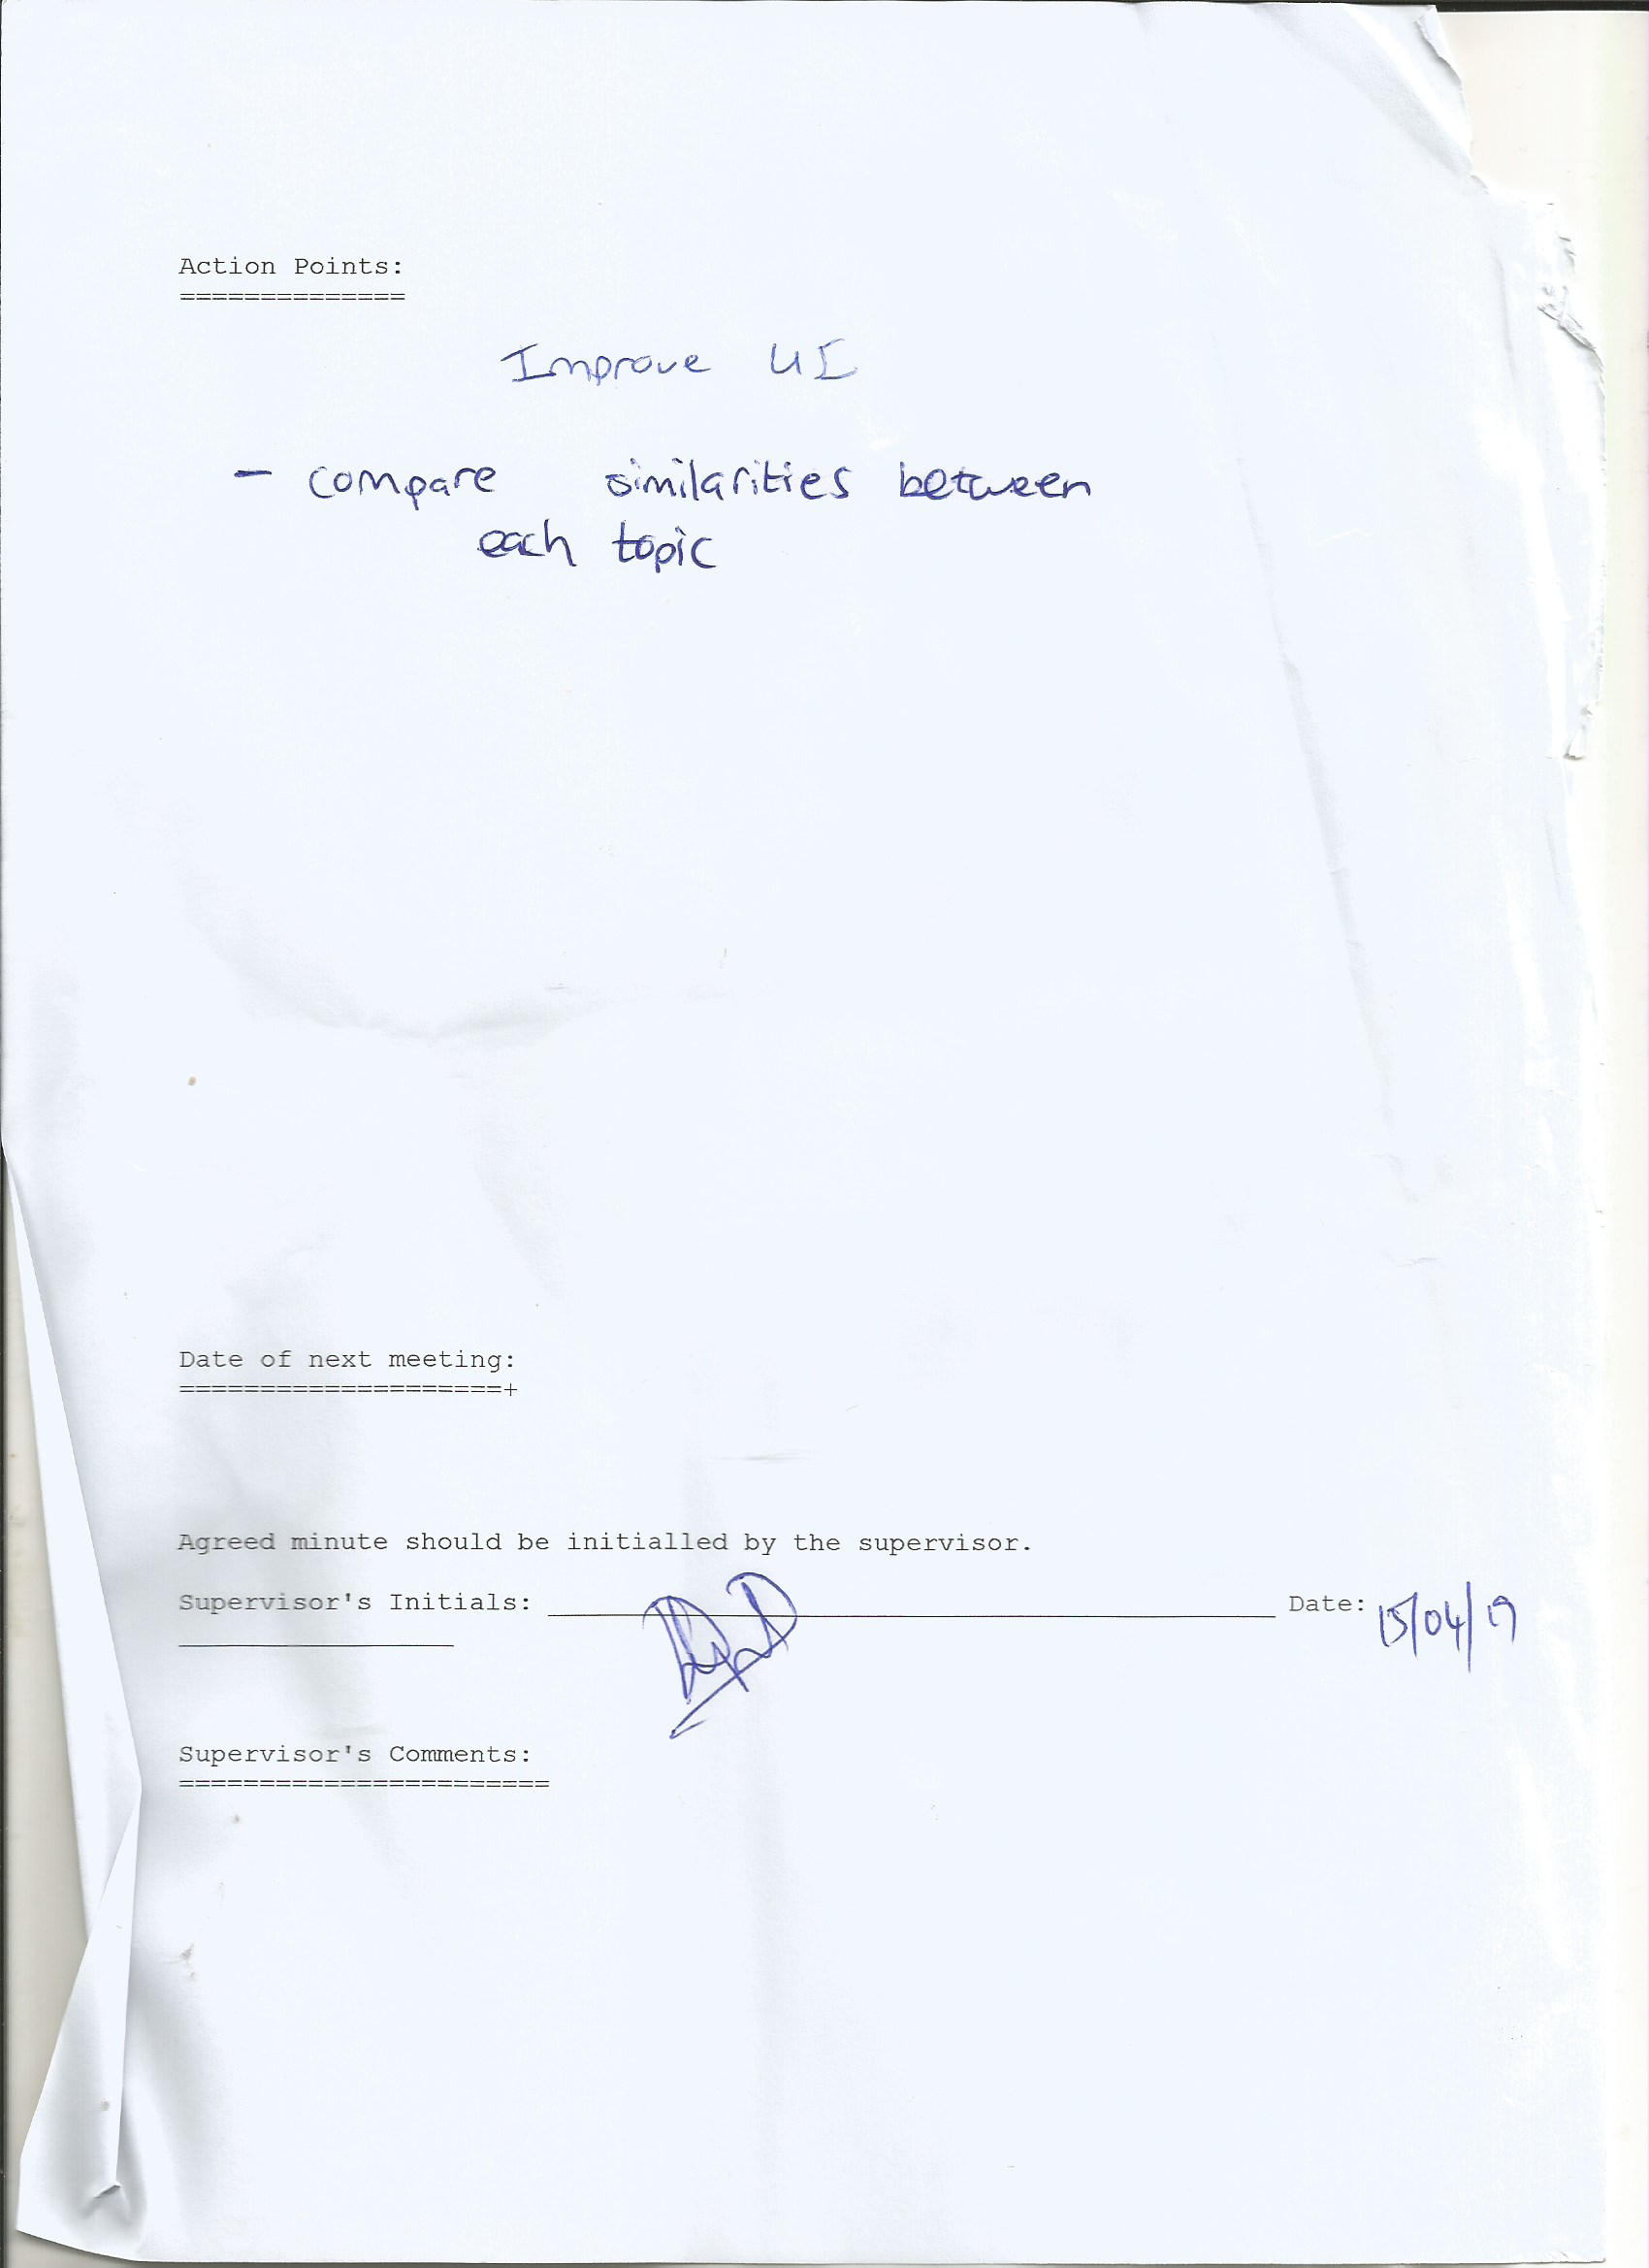 Action Points:
==============
Improve UI
- compare similarities between
each topic
Date of next meeting:
====================+
Agreed minute should be initialled by the supervisor.
Supervisor's Initials: Date: 15/04/19
Supervisor's Comments:
=======================